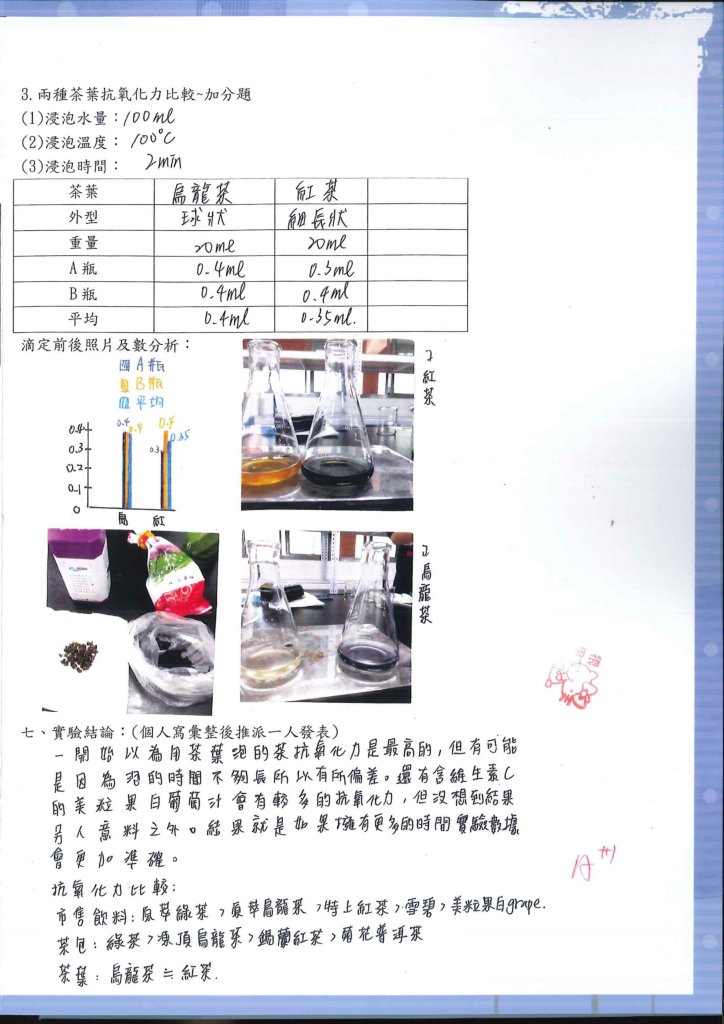 3.兩種茶葉抗氧化力比較~加分題
(1)浸泡水量：100ml
(2)浸泡溫度：100°C
(3)浸泡時間：2min
茶葉 烏龍茶 紅茶
外型 球狀 細長狀
重量 20ml 20ml
A瓶 0.4ml 0.3ml
B瓶 0.4ml 0.4ml
平均 0.4ml 0.35ml.
滴定前後照片及數分析：
A瓶
B瓶
平均
0.4 0.4 0.3 0.4 0.35
0.4
0.3
0.2
0.1
0
烏 紅
1、紅茶
2、烏龍茶
七、實驗結論：(個人寫彙整後推派一人發表)
一開始以為用茶葉泡的茶抗氧化力是最高的，但有可能
是因為泡的時間不夠長所以有所偏差。還有含維生素C
的美粒果白葡萄汁會有較多的抗氧化力，但沒想到結果
另人意料之外。結果就是如果擁有更多的時間實驗數據
會更加準確。
A++1
抗氧化力比較：
市售飲料：原萃綠茶>原萃烏龍茶>特上紅茶>雪碧>美粒果白grape.
茶包：綠茶>凍頂烏龍茶>錫蘭紅茶>菊花普洱茶
茶葉：烏龍茶≒紅茶.